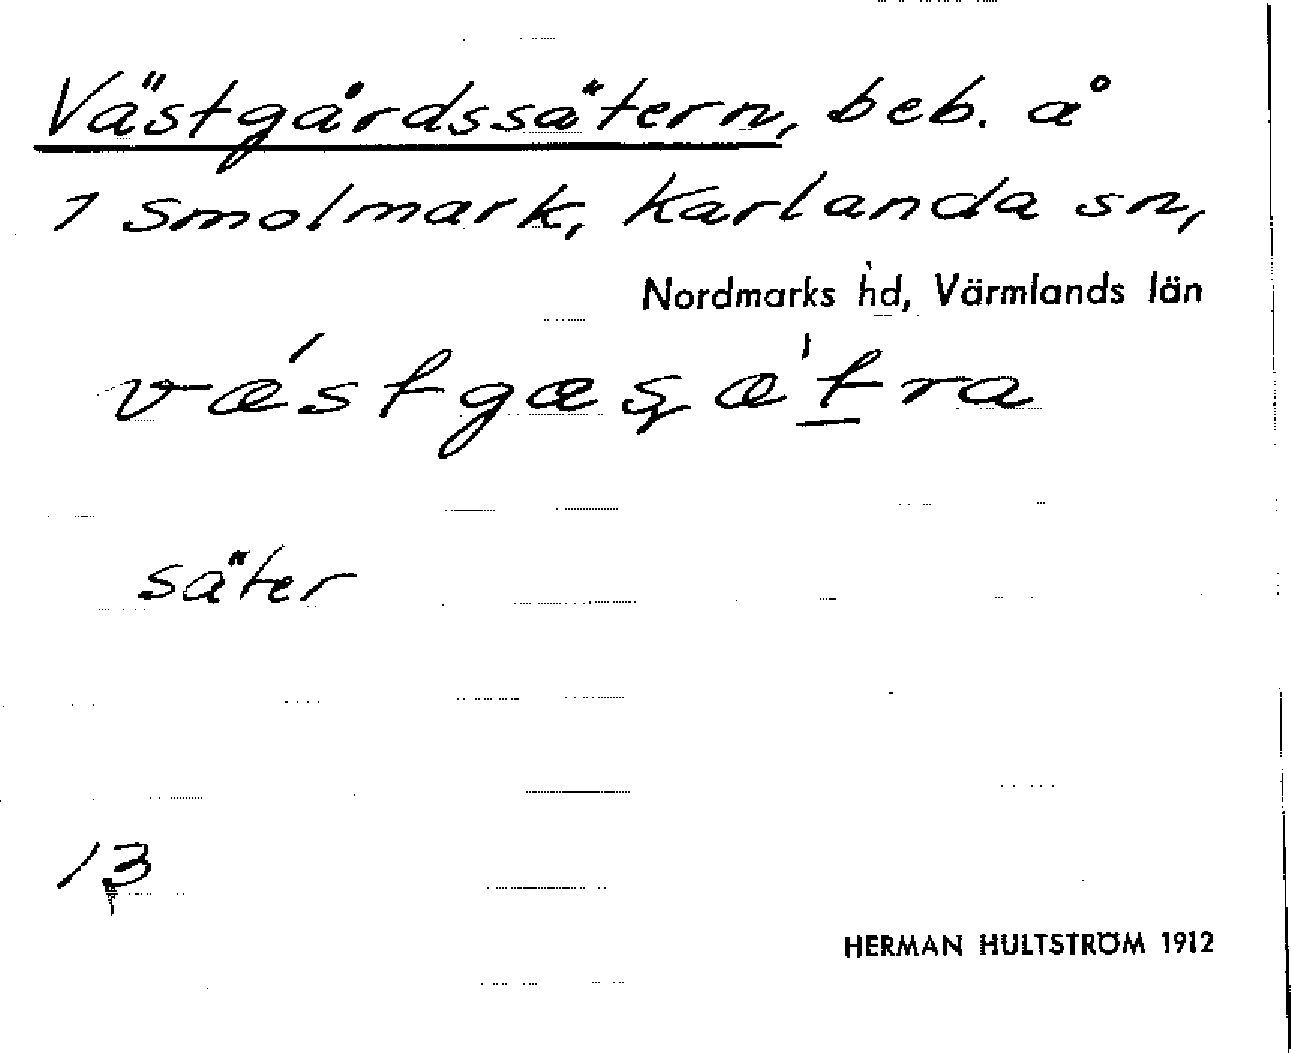 Västgårdssätern, beb. å
1 Smolmark, Karlanda sn,
Nordmarks hd, Värmlands län
vǽstgæʂæ't̲ra
säter
13
HERMAN HULTSTRÖM 1912